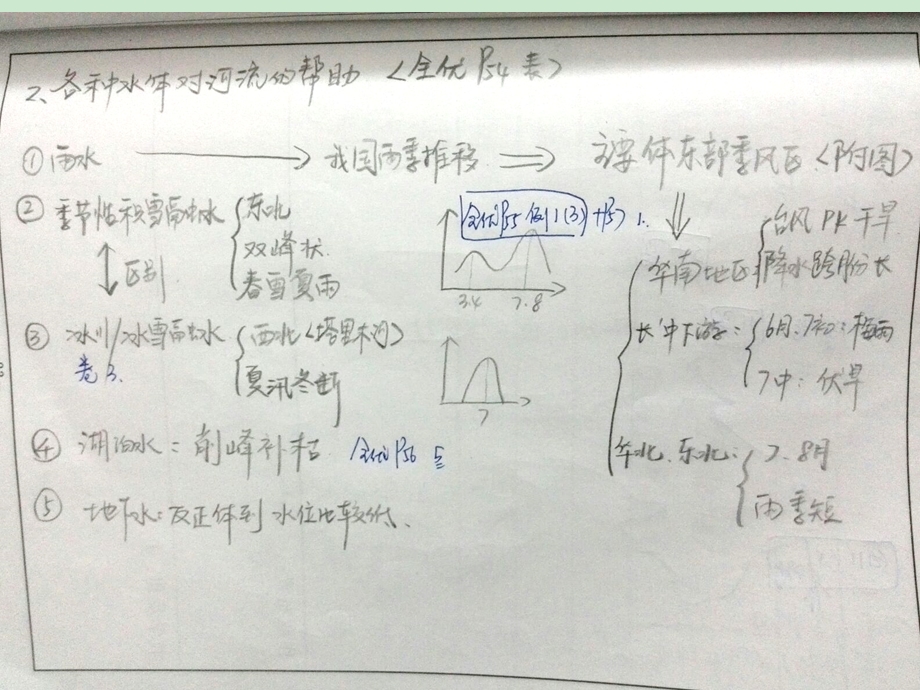 2、各种水体对河流的帮助〈全优 P54 表〉
① 雨水 → 我国雨季推移 ⇒ 主要体东部季风区〈P附图〉
② 季节性积雪融水 { 东北
双峰状
春雪夏雨
全优P55 例1(3) + P57 1.
3.4 7.8
区别
③ 冰川/冰雪融水 { 西北〈塔里木河〉
夏汛冬断
卷3.
7
④ 湖泊水：削峰补枯 全优P56 5
⑤ 地下水：反正体到水位比较低、
华南地区 { 台风PK干旱
降水跨月份长
长中下游：{ 6月、7初：梅雨
7中：伏旱
华北、东北：{ 7、8月
雨季短